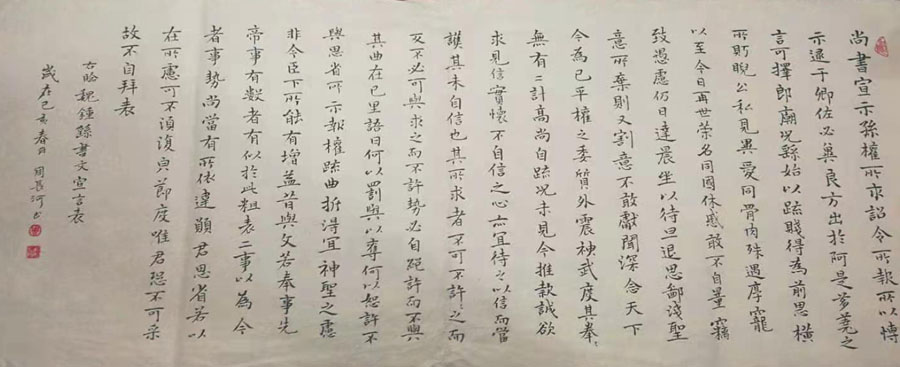 尚書宣示孫權所求詔令所報所以博
示逮于卿佐必冀良方出於阿是芻蕘之
言可擇郎廟況繇始以疏賤得為前恩橫
所盼睨公私見異愛同骨肉殊遇厚寵
以至今日再世榮名同國休慼敢不自量竊
致愚慮仍日達晨坐以待旦退思鄙淺聖
意所棄則又割意不敢獻聞深念天下
今為已平權之委質外震神武度其拳々
無有二計高尚自疏況未見今推款誠欲
求見信實懷不自信之心亦宜待之以信而當
護其未自信也其所求者不可不許之而
反不必可與求之而不許勢必自絕許而不與
其曲在己里語曰何以罰與以奪何以恕許不
與思省所示報權疏曲折得宜神聖之慮
非今臣下所能有增益昔與文若奉事先
帝事有數者有似於此粗表二事以為今
者事勢尚當有所依違願君思省若以
在所慮可不須復 節度唯君恐不可采
故不自拜表
臨魏鍾繇書文宣言表
歲在己亥春月周長河書